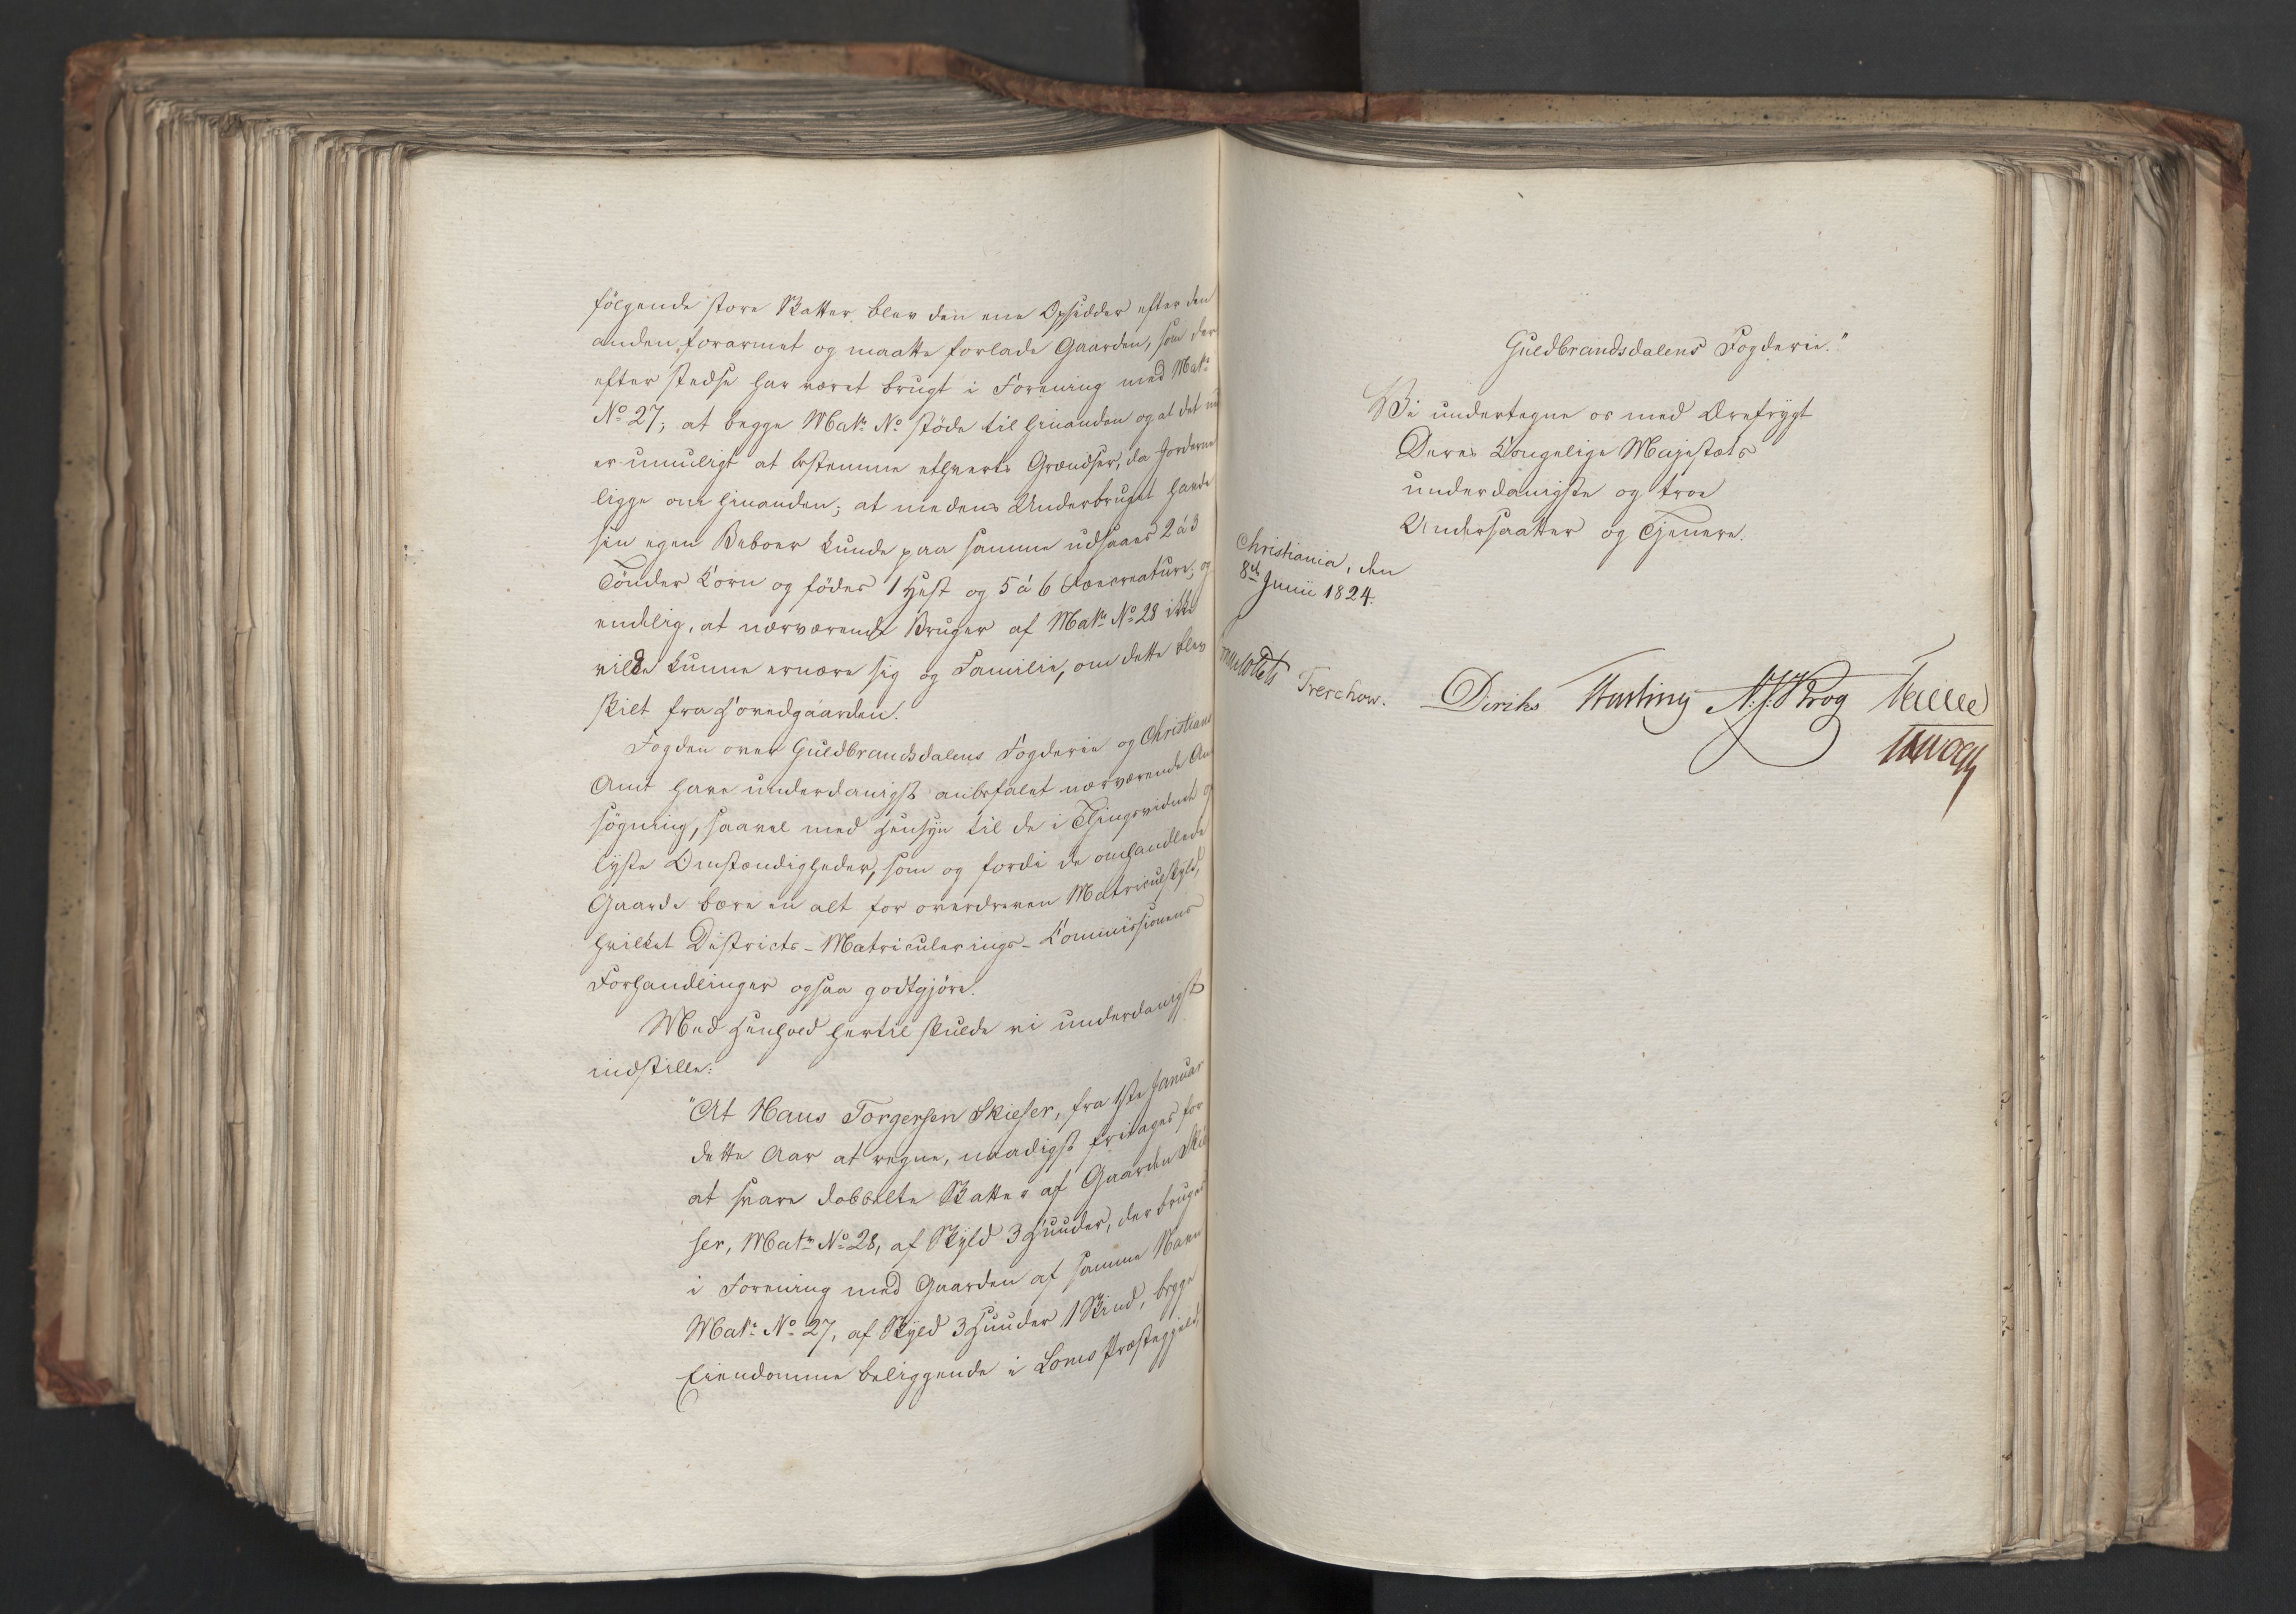 følgende store Skatter blev den ene Opsidder efter den
anden forarmet og maatte forlade Gaarden, som der
efter stedse har været brugt i Forening med Matr:
No 27; at begge Matr: No støde til hinanden og at det nu
er umuligt at bestemme ethverts Grændser, da Jorderne
ligge om hinanden; at medens Underbruget havde
sin egen Beboer kunde paa samme udsaaes 2 à 3
Tønder Korn og födes 1 Hest og 5 à 6 Köecreature; og
endelig, at nærværende Bruger af Matr: No 28 ikke
vilde kunne ernære sig og Familie, om dette blev
skilt fra Hovedgaarden.
Fogden over Guldbrandsdalens Fogderie og Christians
Amt have underdanigst anbefalet nærværende An
søgning, saavel med Hensyn til de i Thingsvidnet op
lyste Omstændigheder, som og fordi de omhandlede
Gaarde bære en alt for overdreven Matriculskyld,
hvilket Districts-Matriculerings-Commissionens
Forhandlinger ogsaa godtgjøre.
Med Henhold hertil skulde vi underdanigst
indstille:
"At Hans Torgersen Skieser, fra 1ste Januar
dette Aar at regne, naadigst fritages for
at svare dobbelte Skatter af Gaarden Skie
ser, Matr: No 28, af Skyld 3 Huuder, der bruges
i Forening med Gaarden af samme Navn
Matr: No 27, af Skyld 3 Huuder 1 Skind, begge
Eiendomme beliggende i Loms Præstegjeld,
Guldbrandsdalens Fogderie."
Vi undertegne os med Ærefrygt
Deres Kongelige Majestæts
underdanigste og troe
Undersaatter og Tjenere.
Christiania, den
8de Junii 1824.
Sommerfeldt Treschow. Diriks Hartung N. J. Krog